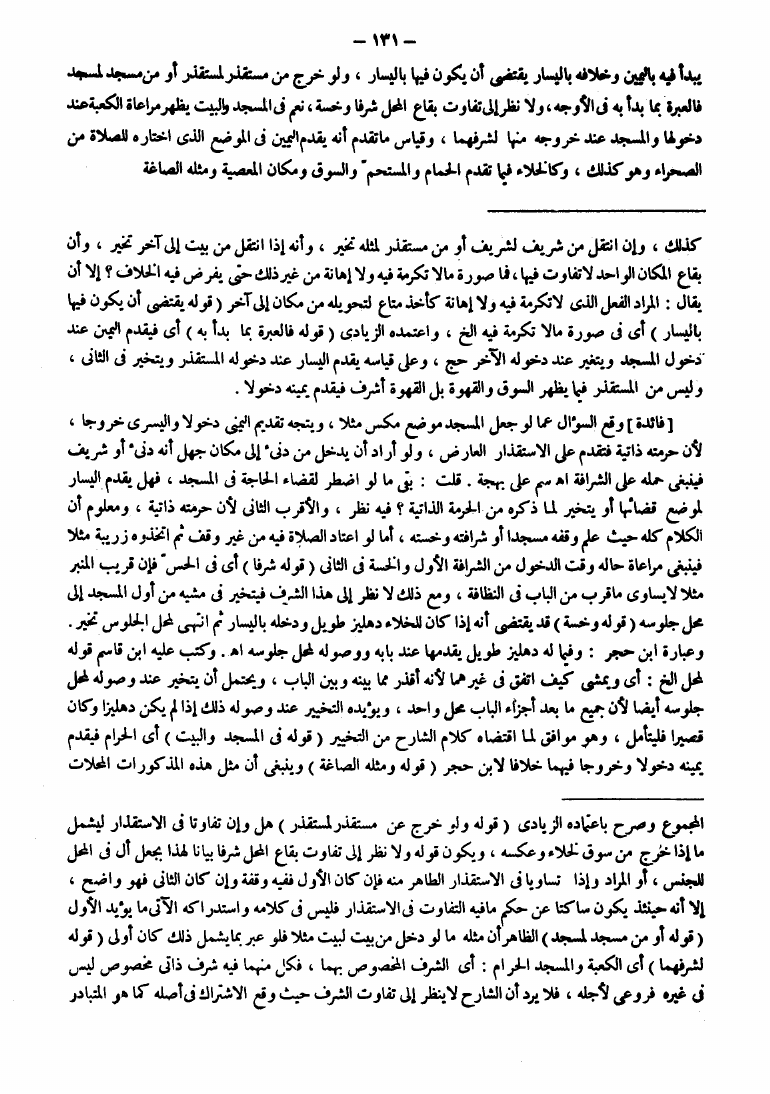 – ١٣١ –
يبدأ فيه باليمين وخلافه باليسار يقتضى أن يكون فيها باليسار ، ولو خرج من مستقذر لمستقذر أو من مسجد لمسجد
فالعبرة بما بدأ به فى الأوجه، ولا نظر إلى تفاوت بقاع المحل شرفا وخسة، نعم فى المسجد والبيت يظهر مراعاة الكعبة عند
دخولها والمسجد عند خروجه منها لشرفهما ، وقياس ماتقدم أنه يقدم اليمين فى الموضع الذى اختاره للصلاة من
الصحراء وهو كذلك ، وكالخلاء فيما تقدم الحمام والمستحم والسوق ومكان المعصية ومثله الصاغة
كذلك ، وإن انتقل من شريف لشريف أو من مستقذر لمثله تخير ، وأنه إذا انتقل من بيت إلى آخر تخير ، وأن
بقاع المكان الواحد لاتفاوت فيها، فما صورة مالا تكرمة فيه ولا إهانة من غير ذلك حتى يفرض فيه الخلاف ؟ إلا أن
يقال : المراد الفعل الذى لاتكرمة فيه ولا إهانة كأخذ متاع لتحويله من مكان إلى آخر ( قوله يقتضى أن يكون فيها
باليسار ) أى فى صورة مالا تكرمة فيه الخ ، واعتمده الزيادى ( قوله فالعبرة بما بدأ به ) أى فيقدم اليمين عند
دخول المسجد ويتخير عند دخوله الآخر حج ، وعلى قياسه يقدم اليسار عند دخوله المستقذر ويتخير فى الثانى ،
وليس من المستقذر فيما يظهر السوق والقهوة بل القهوة أشرف فيقدم يمينه دخولا .
[ فائدة ] وقع السؤال عما لو جعل المسجد موضع مكس مثلا ، ويتجه تقديم اليمنى دخولا واليسرى خروجا ،
لأن حرمته ذاتية فتقدم على الاستقذار العارض ، ولو أراد أن يدخل من دنىء إلى مكان جهل أنه دنىء أو شريف
فينبغى حمله على الشرافة اه سم على بهجة . قلت : بقى ما لو اضطر لقضاء الحاجة فى المسجد ، فهل يقدم اليسار
لموضع قضائها أو يتخير لما ذكره من الحرمة الذاتية ؟ فيه نظر ، والأقرب الثانى لأن حرمته ذاتية ، ومعلوم أن
الكلام كله حيث علم وقفه مسجدا أو شرافته وخسته ، أما لو اعتاد الصلاة فيه من غير وقف ثم اتخذوه زريبة مثلا
فينبغى مراعاة حاله وقت الدخول من الشرافة الأول والخسة فى الثانى ( قوله شرفا ) أى فى الحس فإن قريب المنبر
مثلا لايساوى ماقرب من الباب فى النظافة ، ومع ذلك لا نظر إلى هذا الشرف فيتخير فى مشيه من أول المسجد إلى
محل جلوسه ( قوله وخسة ) قد يقتضى أنه إذا كان للخلاء دهليز طويل ودخله باليسار ثم انتهى لمحل الجلوس تخير .
وعبارة ابن حجر : وفيما له دهليز طويل يقدمها عند بابه ووصوله لمحل جلوسه اه . وكتب عليه ابن قاسم قوله
لمحل الخ : أى ويمشى كيف اتفق فى غيرهما لأنه أقذر مما بينه وبين الباب ، ويحتمل أن يتخير عند وصوله لمحل
جلوسه أيضا لأن جميع ما بعد أجزاء الباب محل واحد ، ويؤيده التخيير عند وصوله ذلك إذا لم يكن دهليزا وكان
قصيرا فليتأمل ، وهو موافق لما اقتضاه كلام الشارح من التخيير ( قوله فى المسجد والبيت ) أى الحرام فيقدم
يمينه دخولا وخروجا فيهما خلافا لابن حجر ( قوله ومثله الصاغة ) وينبغى أن مثل هذه المذكورات المحلات
المجموع وصرح باعتماده الزيادى ( قوله ولو خرج عن مستقذر لمستقذر ) هل وإن تفاوتا فى الاستقذار ليشمل
ما إذا خرج من سوق لخلاء وعكسه ، ويكون قوله ولا نظر إلى تفاوت بقاع المحل شرفا بيانا لهذا بجعل أل فى المحل
للجنس ، أو المراد وإذا تساويا فى الاستقذار الظاهر منه فإن كان الأول ففيه وقفة وإن كان الثانى فهو واضح ،
إلا أنه حينئذ يكون ساكتا عن حكم مافيه التفاوت فى الاستقذار فليس فى كلامه واستدراكه الآتى ما يؤيد الأول
( قوله أو من مسجد لمسجد ) الظاهر أن مثله ما لو دخل من بيت لبيت مثلا فلو عبر بما يشمل ذلك كان أولى ( قوله
لشرفهما ) أى الكعبة والمسجد الحرام : أى الشرف المخصوص بهما ، فكل منهما فيه شرف ذاتى مخصوص ليس
فى غيره فروعى لأجله ، فلا يرد أن الشارح لاينظر إلى تفاوت الشرف حيث وقع الاشتراك فى أصله كما هو المتبادر